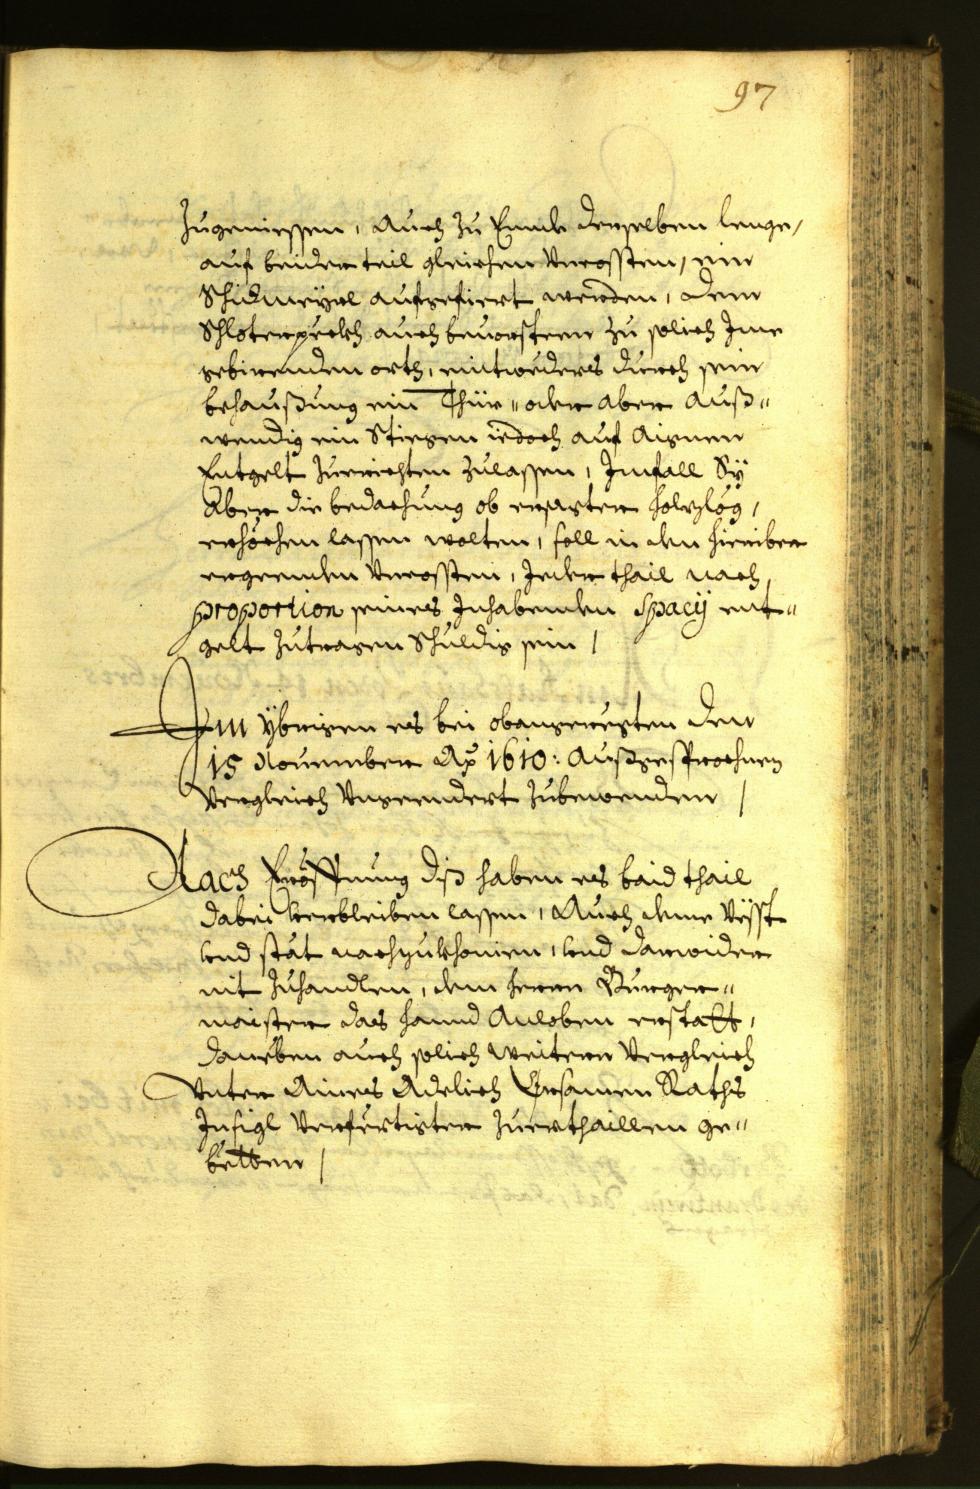 97
Zugeniessen, Auch zu Ennde derselben lenge,
auf beider teil gleichen Uncossten, ein
Schidmeyrl aufgefiert werden, dem
auch bevorsteen zu solich Ime
gebirenden orth, entweders durch sein
behaußung ein Thür- oder aber Auß-
wendig ein Stiegen iedoch auf Aignen
Entgelt zurrichten zulassen, Imfall Sÿ
Aber die bedachung ob ersagter holzlög,
erhöchen lassen wolten, soll in den hieriber
ergeenden Uncossten, Jeder thail nach
proportion seines Inhabenden Spacÿ ent-
gelt zutragen Schuldig sein /
Im ÿbrigen es bei obangeregten den
15 November Ao 1610: Außgesprochnen
Verglaich Ungeendert zubewenden /
Nach Eröffnung diß haben es baid thail
dabei verbleiben lassen, Auch deme Vösst
vnd stät nachzukhomen, vnd darwider
nit zuhandlen, dem herrn Burger-
maister das hannd Anloben erstatt,
daneben auch solich weitern Verglaich
Vnter Aines Adelich Ersamen Raths
Insigl Verfertigter zuerthaillen ge-
betten /